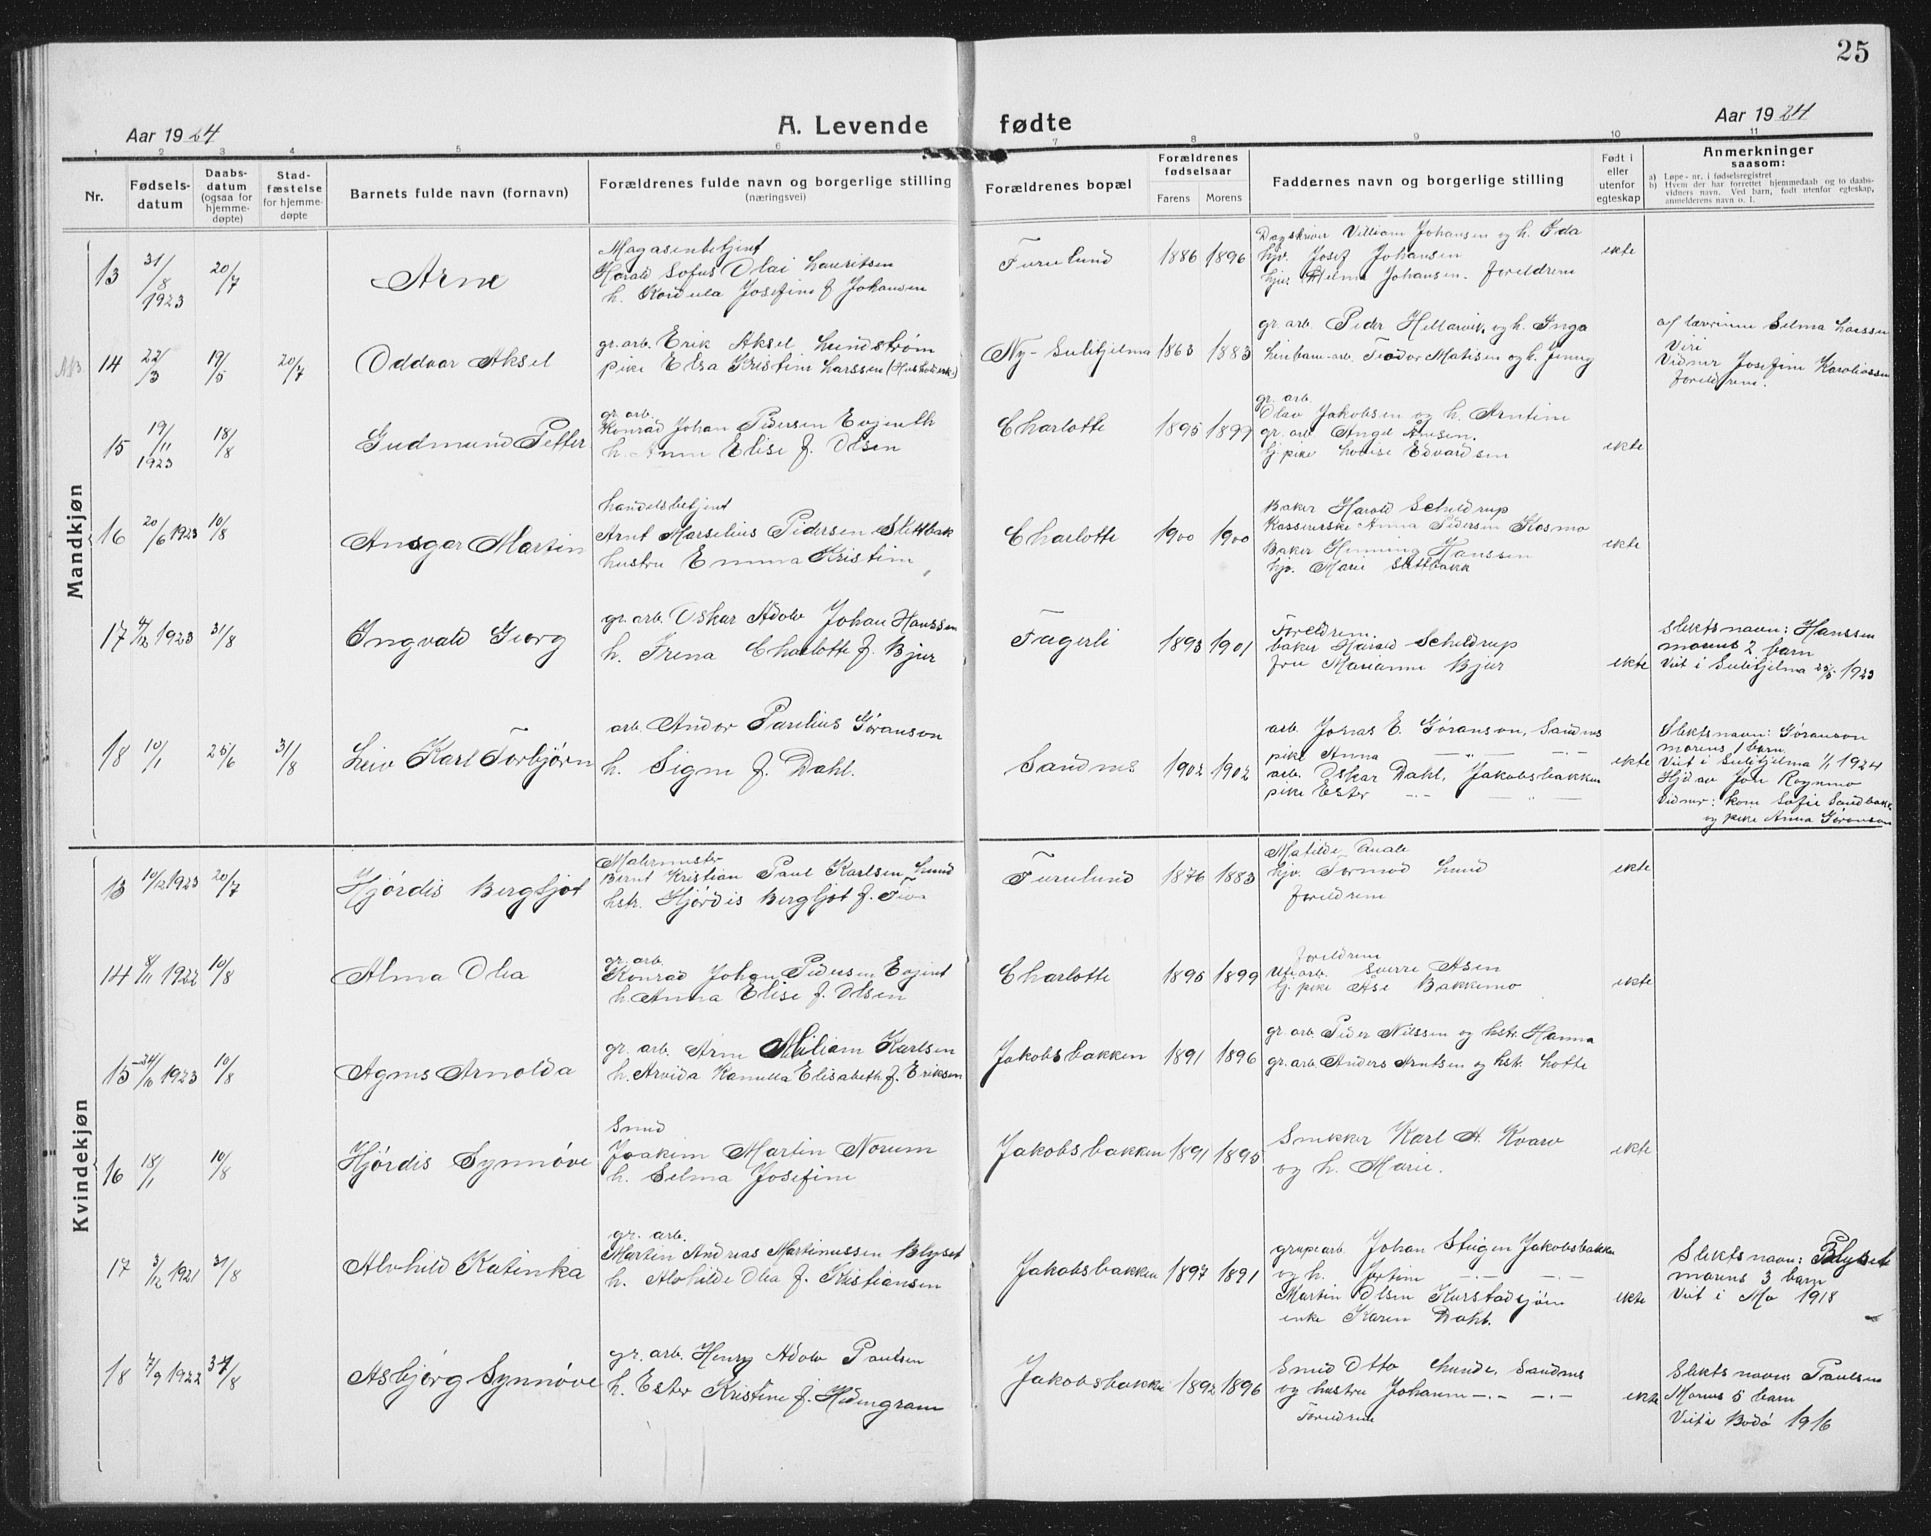 25
Aar 1924
A. Levende fødte
Aar 1924
1 2 3 4 5 6 7 8 9 10 11
Nr.
Fødsels-
datum
Daabs-
datum
(ogsaa for
hjemme-
døpte)
Stad-
fæstelse
for hjemme-
døpte
Barnets fulde navn (fornavn)
Forældrenes fulde navn og borgerlige stilling
(næringsvei)
Forældrenes bopæl
Forældrenes
fødselsaar
Farens Morens
Faddernes navn og borgerlige stilling
Født i
eller
utenfor
egteskap
Anmerkninger
saasom:
a) Løpe-nr. i fødselsregistret
b) Hvem der har forrettet hjemmedaab og to daabs-
vidners navn. Ved barn, født utenfor egteskap,
anmelderens navn o. l.
Mandkjøn
13
31/8
1923
20/7
Arne
Magasenbetjent
Harald Sofus Olai Lauritsen
h. Kordula Josefine f. Johansen
Furulund
1886 1896
Dagskriver Villiam Johansen og h. Ida
hjv. Josef Johansen
hjv. Helma Johansen. Foreldrene
ekte
14
22/3
19/5
20/7
Oddvar Aksel
gr. arb. Erik Aksel Lundstrøm
pike Elsa Kristine Larssen
Ny-Sulitjelma
1863 1883
gr. arb. Peder Hellarvik og h. Inga
Linbane-arb. Teodor Matisen og h. Jenny
af lærerinne Selma Larssen
Viri
Vidner Josefine Karoliussen
foreldrene.
15
19/11
1923
18/8
Gudmund Petter
gr. arb.
Konrad Johan Pedersen Evjenth
h. Anna Elise f. Olsen
Charlotte
1895 1899
gr. arb.
Olav Jakobsen og h. Arntine
gr. arb Angel Arnesen.
tj. pike Lovise Edvardsen
ekte
16
20/6 1923
10/8
Ansgar Martin
handelsbetjent
Arnt Marselius Pedersen Slettbak
hustru Emma Kristine
Charlotte
1900 1900
Baker Harald Scheldrup
Kassererske Anna Pedersen Kosmo
Baker Henning Hanssen
hjv. Marie Slettbakk
ekte
17
4/12 1923
31/8
Ingvald Georg
gr. arb. Oskar Adolv Johan Hanssen
h. Frena Charlotte f. Bjur
Fagerli
1893 1901
Foreldrene.
baker Harald Scheldrup
fru Marianne Bjur
ekte
Slektsnavn: Hanssen
morens 2 barn
Viet i Sulitjelma 25/5 1923
18
10/1
25/6
31/8
Leiv Karl Torbjørn
arb. Andor Parelius Gøranson
h. Signe f. Dahl.
Sandnes
1902 1902
arb. Jonas E. Gøranson, Sandnes
pike Anna —"— —"—
arb. Oskar Dahl, Jakobsbakken
pike Ester —"— —"—
ekte
Slektsnavn: Gøranson
morens 1 barn.
Viet i Sulitjelma 1/1 1924
Hjd av Jon Rognmo
Vidner: kone Sofie Sandbakk
og pike Anna Gøranson
Kvindekjøn
13
10/2 1923
20/7
Hjørdis Bergljot
Malermester
Bernt Kristian Paul Karlsen Lund
hstr. Hjørdis Bergljot f.
Furulund
1876 1883
Matilde
hjv. Tormod Lund
foreldrene
ekte
14
8/11 1922
10/8
Alma Olea
gr. arb.
Konrad Johan Pedersen Evjent
h. Anna Elise f. Olsen
Charlotte
1895 1899
foreldrene
Utearb. Sverre Åsen
tj. pike Åse Bakkemo
ekte
15
24/10 1923
10/8
Agnes Arnolda
gr. arb. Arne Miliam Karlsen
h. Arvida Kamilla Elisabeth f. Eriksen
Jakobsbakken
1891 1896
gr. arb. Peder Nilssen og hstr. Hanna
gr. arb. Anders Arntsen og hstr. Lotte
16
18/1
10/8
Hjørdis Synnøve
Smed
Joakim Martin Norum
h. Selma Josefine
Jakobsbakken
1891 1895
Snekker Karl A. Kvarv
og h. Marie.
ekte
17
3/12 1921
31/8
Alvhild Katinka
gr. arb.
Martin Andreas Martinussen Blyset
h. Alvhilde Olea f. Kristiansen
Jakobsbakken
1897 1891
grupearb. Johan Stigen Jakobsbakken
og h. Jortine —"—
Martin Olsen
enke Karen Dahl.
ekte
Slektsnavn: Blyset
morens 3 barn
Viet i Mo 1918
18
7/9 1922
31/8
Asbjørg Synnøve
gr. arb. Henry Adolv Paulsen
h. Ester Kristine f. Hedengram
Jakobsbakken
1892 1896
Smed Otto Lunde, Sandnes
og hustru Johanne —"— —"—
Foreldrene
ekte
Slektsnavn Paulsen
Morens 5 barn
Viet i Bodø 1916